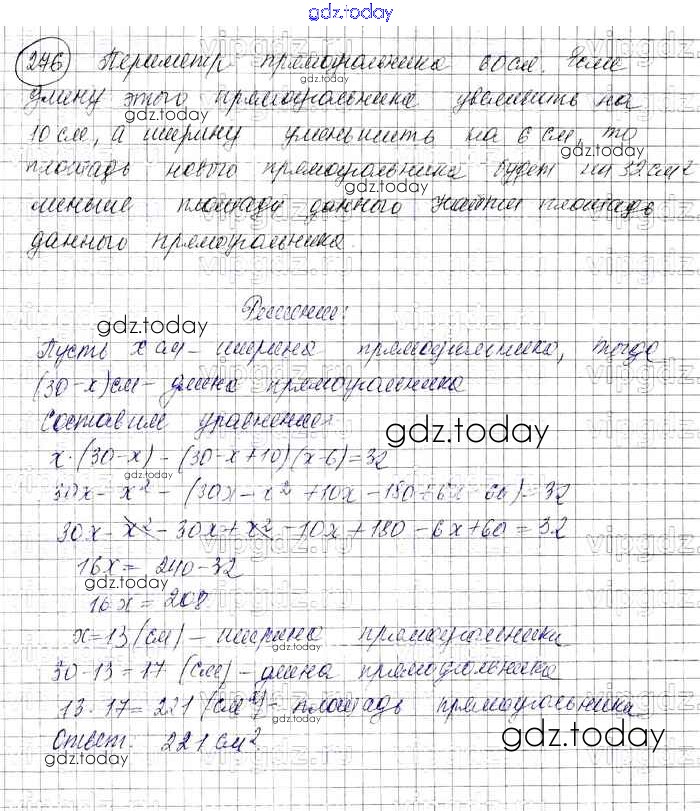 gdz.today
276 Периметр прямоугольника 60 см. Если
длину этого прямоугольника увеличить на
10 см, а ширину уменьшить на 6 см, то
площадь нового прямоугольника будет на 32 см²
меньше площади данного. Найти площадь
данного прямоугольника.
Решение:
Пусть x см – ширина прямоугольника, тогда
(30-x) см – длина прямоугольника
Составим уравнение:
x·(30-x) - (30-x+10)(x-6)=32
30x - x² - (30x - x² + 10x - 180 + 6x - 60) = 32
30x - x² - 30x + x² - 10x + 180 - 6x + 60 = 32
16x = 240-32
16x = 208
x=13 (см) – ширина прямоугольника
30-13=17 (см) – длина прямоугольника
13·17=221 (см²) – площадь прямоугольника
Ответ: 221 см²
gdz.today